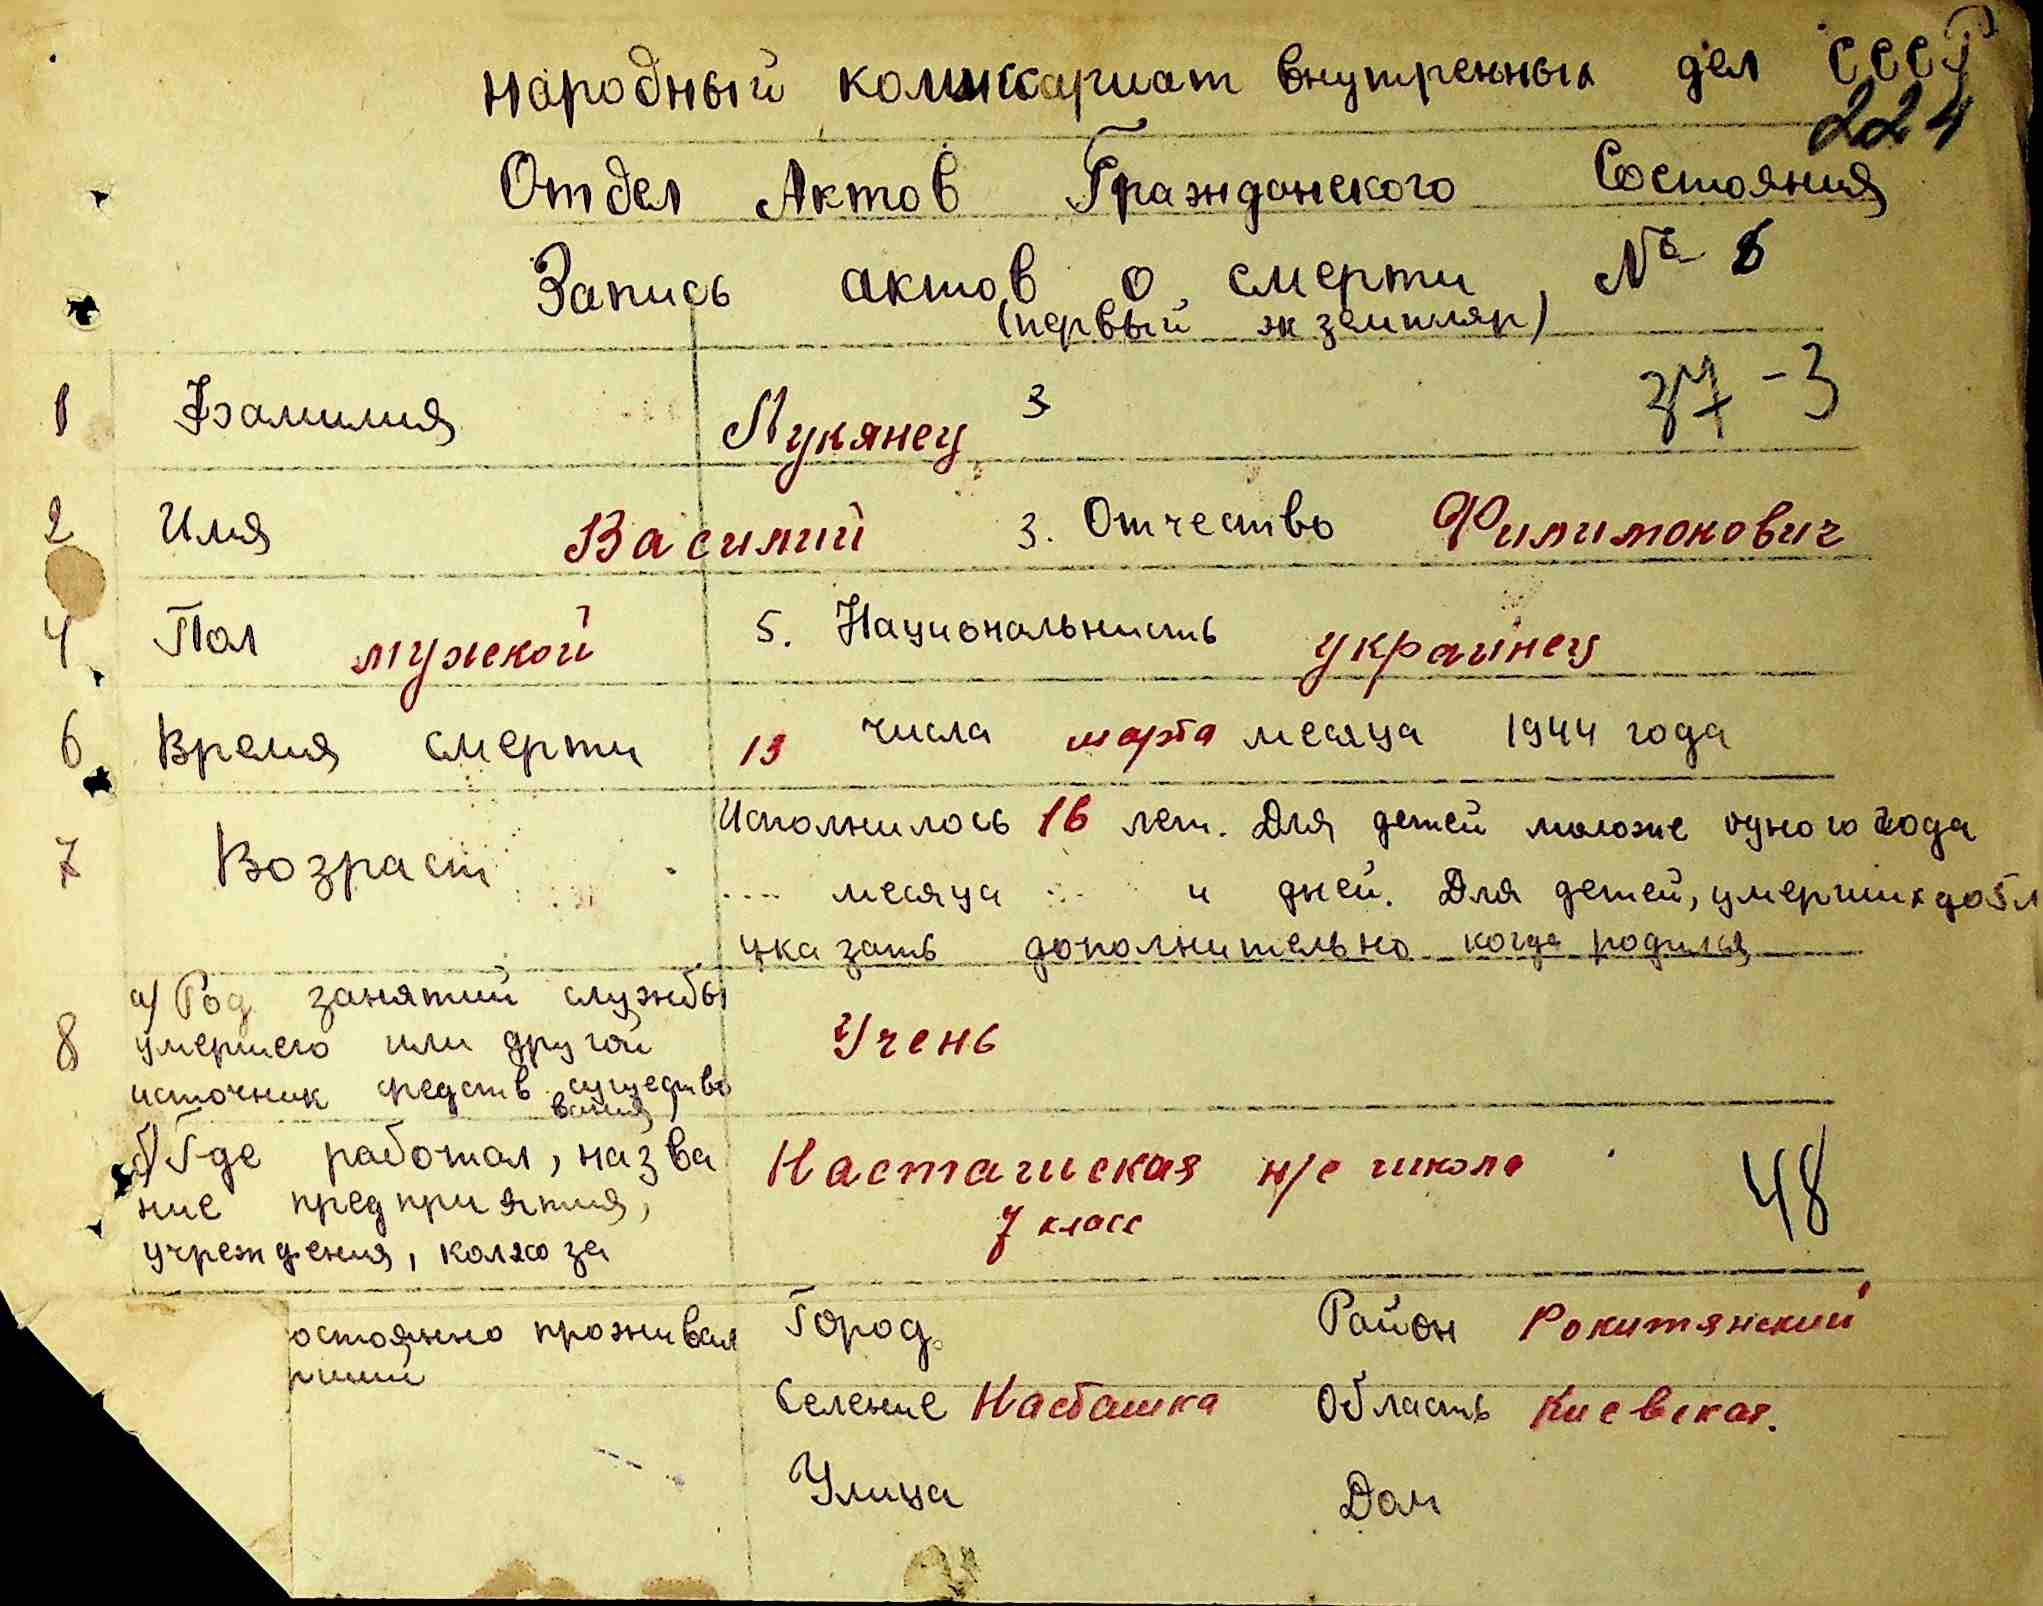 народный комиссариат внутренных дел СССР
224
Отдел Актов Гражданского Состояния
Запись актов о смерти № 6
(первый экземпляр)
37-3
1 Фамилия Лукянец 3
2 Имя Василий 3. Отчество Филимонович
4 Пол мужской 5. Национальность украинец
6 Время смерти 13 числа марта месяца 1944 года
7 Возраст Исполнилось 16 лет. Для детей моложе одного года
.... месяца ... и дней. Для детей, умерших до 5 л
указать дополнительно когда родился
а) Род занятий службы
8 умершего или другой Учень
источник средств существо
вания
б) Где работал, назва Насташская н/с школа
ние предприятия, 7 класс 48
учреждения, колхоза
остоянно проживал Город Район Рокитянский
рший
Селение Насташка Область Киевская.
Улица Дом